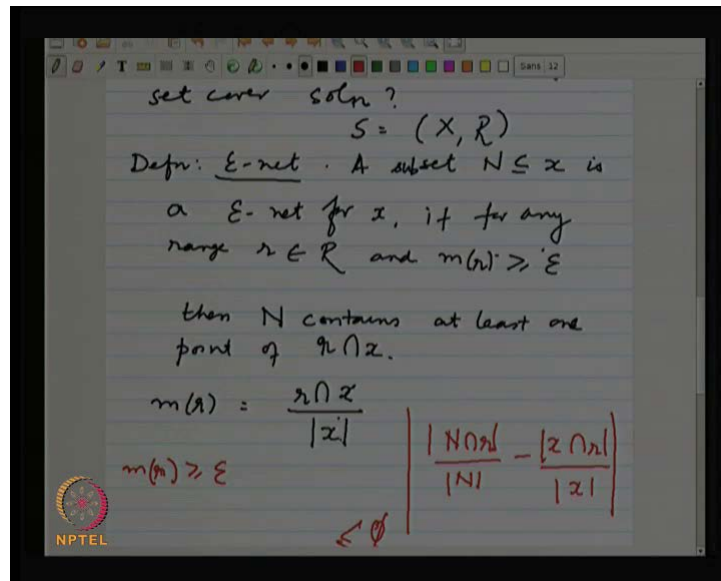 Sans 12
set cover soln?
S = (X, R)
Defn: ε-net. A subset N ⊆ x is
a ε-net for x, if for any
range r ∈ R and m(r) ≥ ε
then N contains at least one
point of r ∩ x.
m(r) = r ∩ x / |x|
m(r) ≥ ε
| |N ∩ r| / |N| − |x ∩ r| / |x| |
≤ φ
NPTEL